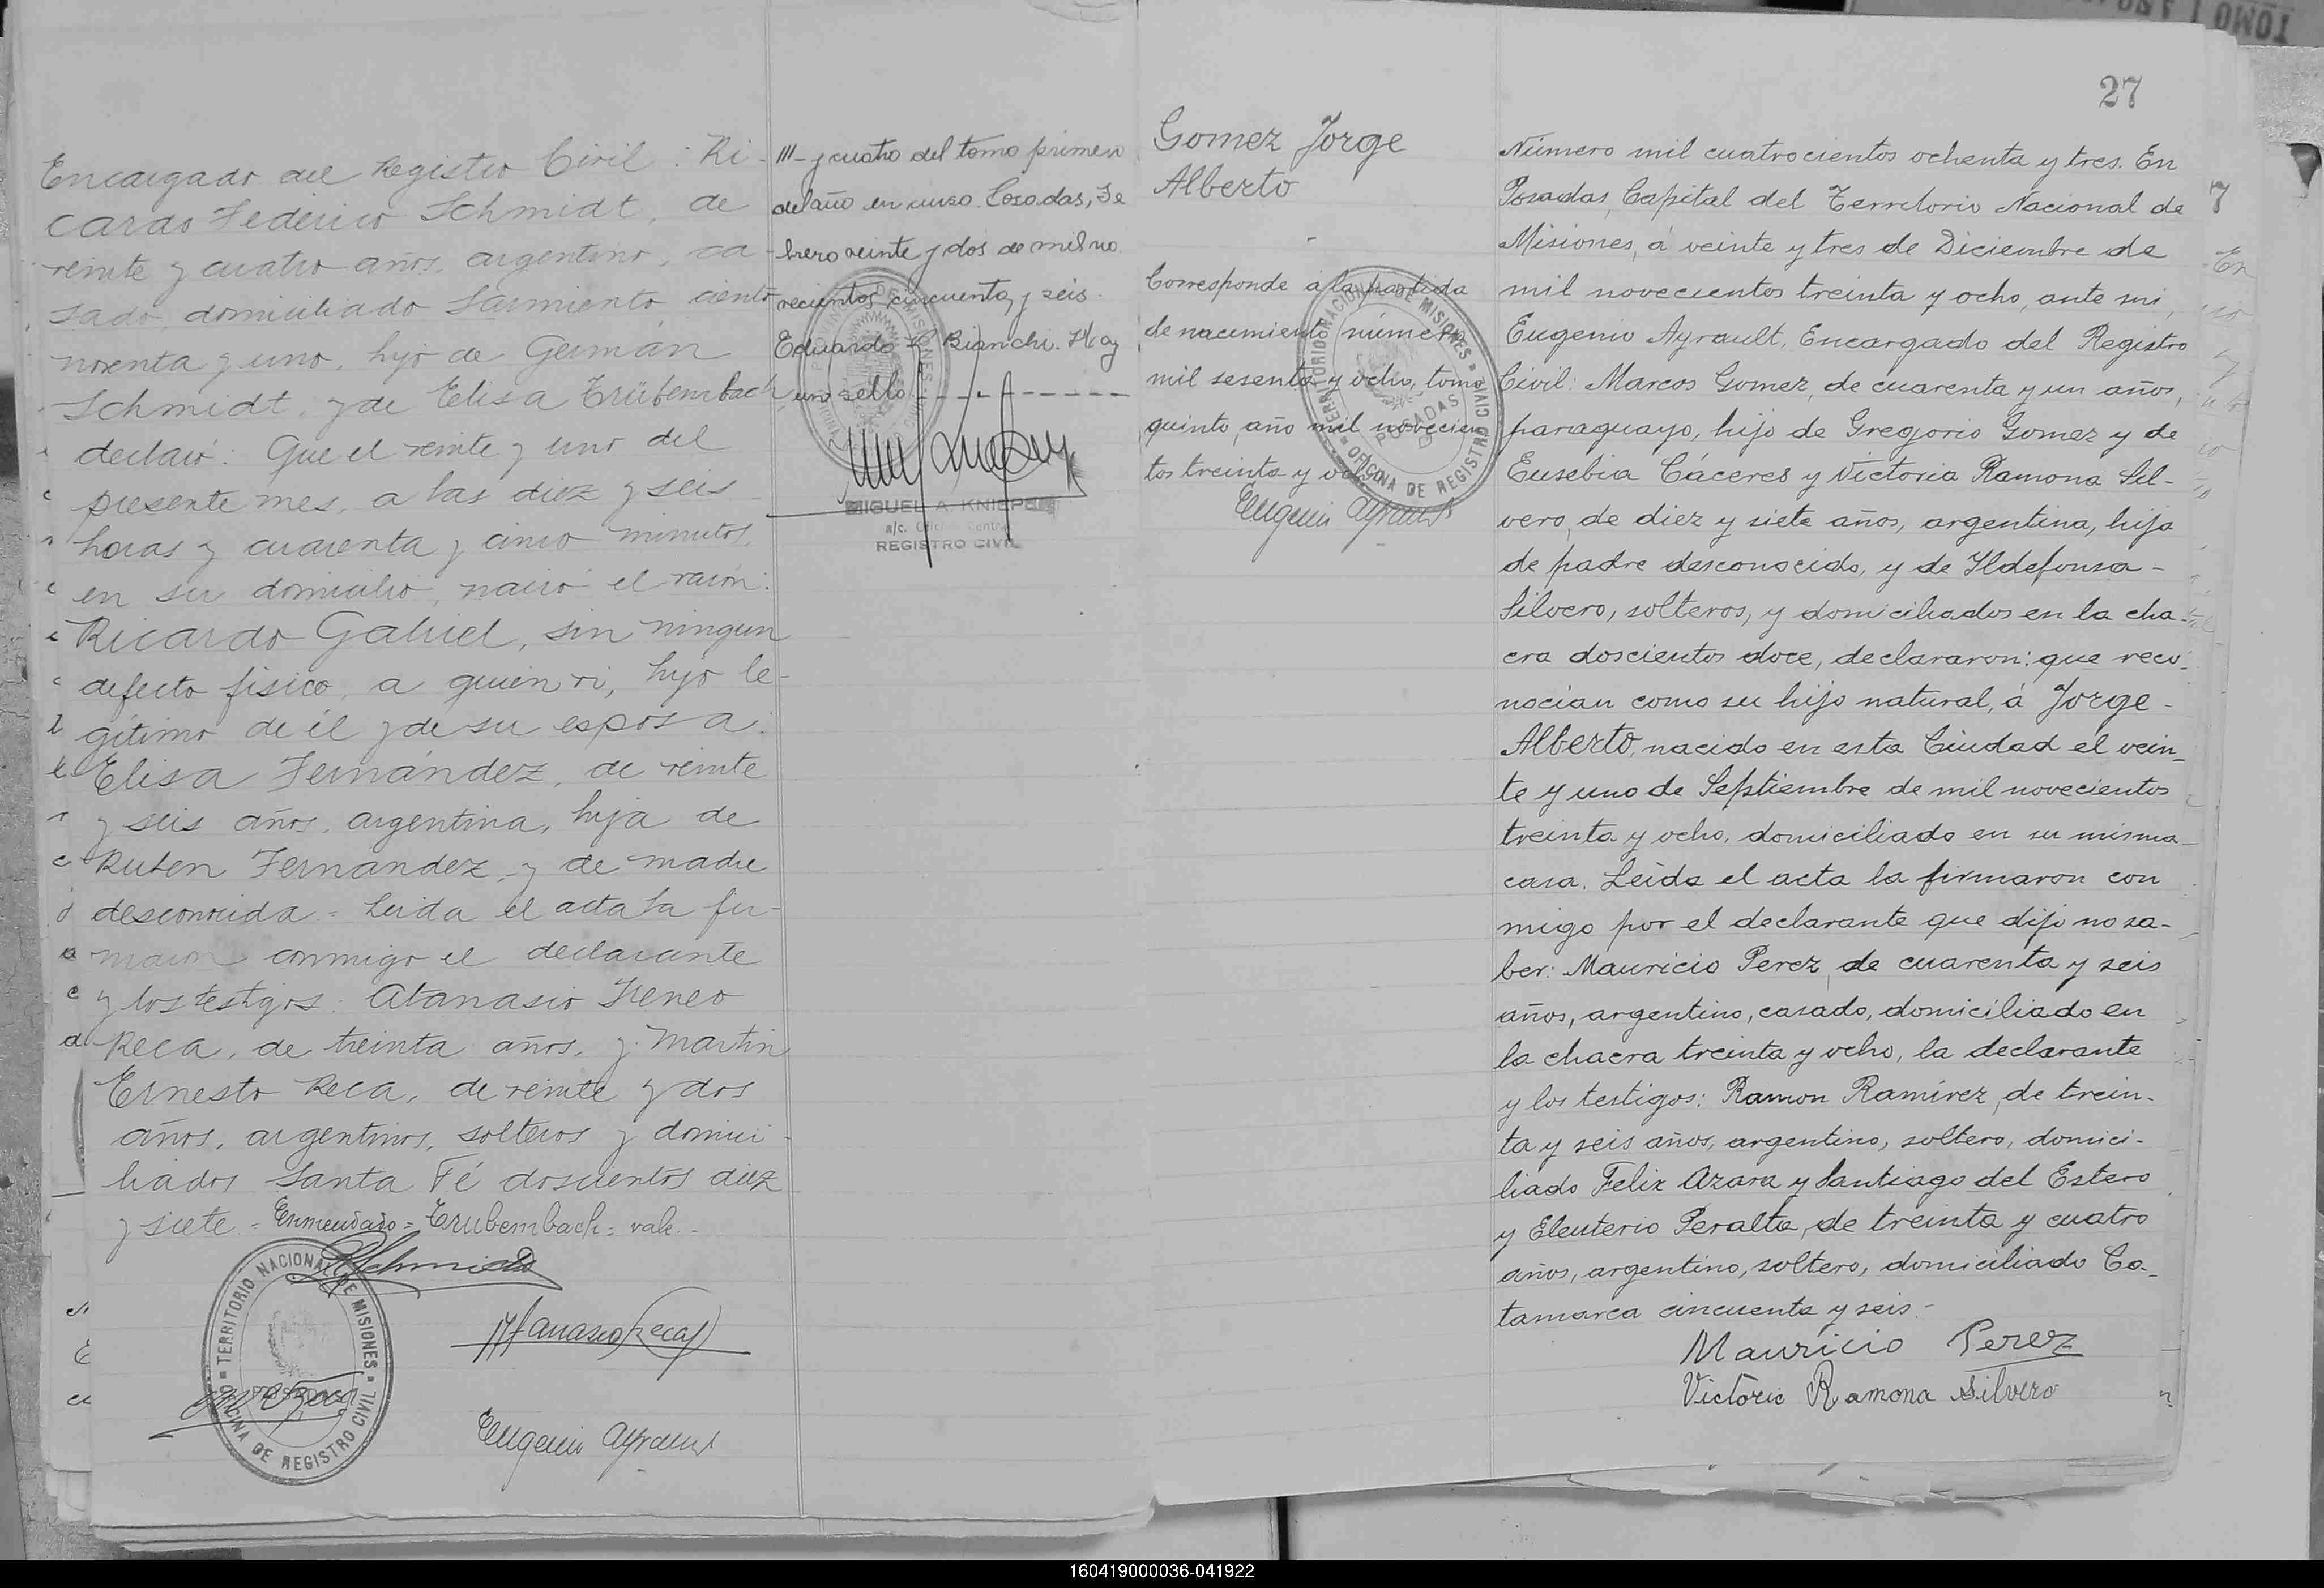 Encargado del Registro Civil: Ri-
cardo Federico Schmidt, de
veinte y cuatro años, argentino, ca-
sado, domiciliado Sarmiento ciento
noventa y uno, hijo de Germán
Schmidt, y de Elisa Trübembach,
declaró: Que el veinte y uno del
presente mes, a las diez y seis
horas y cuarenta y cinco minutos,
en su domicilio, nació el varón:
Ricardo Gabriel, sin ningun
defecto fisico, a quien vi, hijo le-
gitimo de él y de su esposa:
Elisa Fernández, de veinte
y seis años, argentina, hija de
Ruben Fernandez, y de madre
desconocida = Leida el acta la fir-
maron conmigo el declarante
y los testigos: Atanasio Ireneo
Reca, de treinta años, y Martin
Ernesto Reca, de veinte y dos
años, argentinos, solteros y domici-
liados Santa Fé doscientos diez
y siete = Enmendado = Trubembach = vale.-
Schmidt
Atanasio Reca
TERRITORIO NACIONAL DE MISIONES
OFICINA DE REGISTRO CIVIL
POSADAS
Eugenio Ayrault
III- y cuatro del tomo primero
del año en curso. Posadas, Fe
brero veinte y dos de mil no
vecientos cincuenta y seis.
Eduardo L. Bianchi. Hay
un sello - - - - - - - -
MIGUEL A. KNIEPE
a/c. Oficina Central
REGISTRO CIVIL
TOMO I
27
7
Gomez Jorge
Alberto
Corresponde á la partida
de nacimiento número
mil sesenta y ocho, tomo
quinto, año mil novecien
tos treinta y ocho.
Eugenio Ayrault
TERRITORIO NACIONAL DE MISIONES
POSADAS
OFICINA DE REGISTRO CIVIL
Número mil cuatrocientos ochenta y tres. En
Posadas, Capital del Territorio Nacional de
Misiones, á veinte y tres de Diciembre de
mil novecientos treinta y ocho, ante mi,
Eugenio Ayrault, Encargado del Registro
Civil: Marcos Gomez, de cuarenta y un años,
paraguayo, hijo de Gregorio Gomez y de
Eusebia Cáceres y Victoria Ramona Sil-
vero, de diez y siete años, argentina, hija
de padre desconocido, y de Ildefonsa -
Silvero, solteros, y domiciliados en la cha-
cra doscientos doce, declararon: que reco-
nocian como su hijo natural, á Jorge -
Alberto, nacido en esta Ciudad el vein_
te y uno de Septiembre de mil novecientos
treinta y ocho, domiciliado en su misma
casa. Leida el acta la firmaron con
migo por el declarante que dijo no sa-
ber: Mauricio Perez, de cuarenta y seis
años, argentino, casado, domiciliado en
la chacra treinta y ocho, la declarante
y los testigos: Ramon Ramirez, de trein-
ta y seis años, argentino, soltero, domici-
liado Felix Azara y Santiago del Estero
y Eleuterio Peralta, de treinta y cuatro
años, argentino, soltero, domiciliado Ca-
tamarca cincuenta y seis -
Mauricio Perez
Victoria Ramona Silvero
160419000036-041922